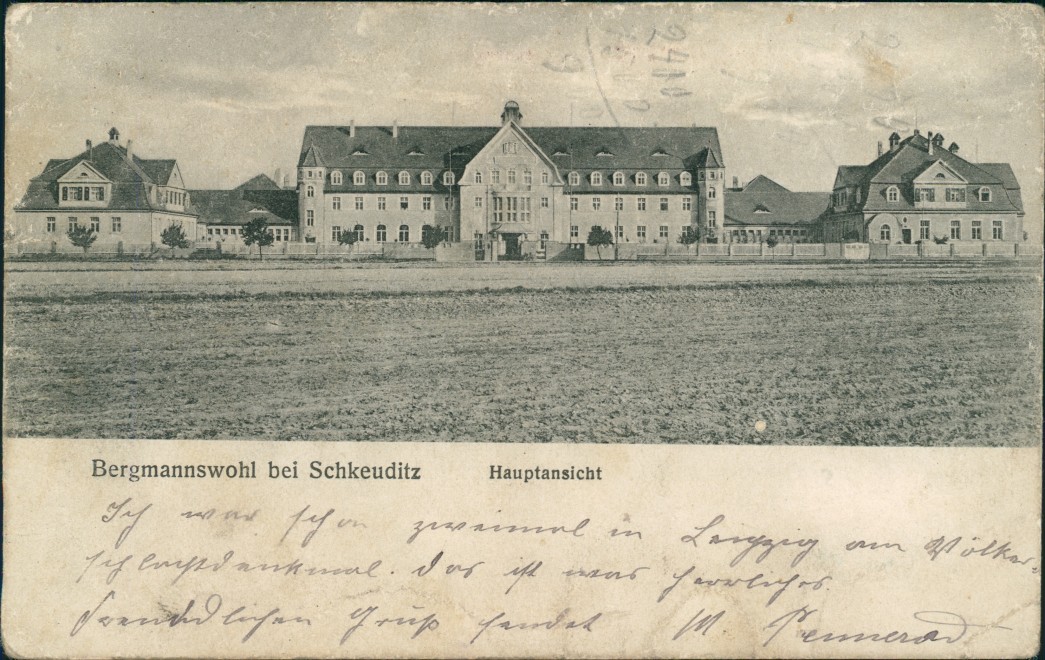 Bergmannswohl bei Schkeuditz Hauptansicht
Ich war schon zweimal in Leipzig am Völker-
schlachtdenkmal. das ist was herrliches.
Freundlichen Gruß sendet M